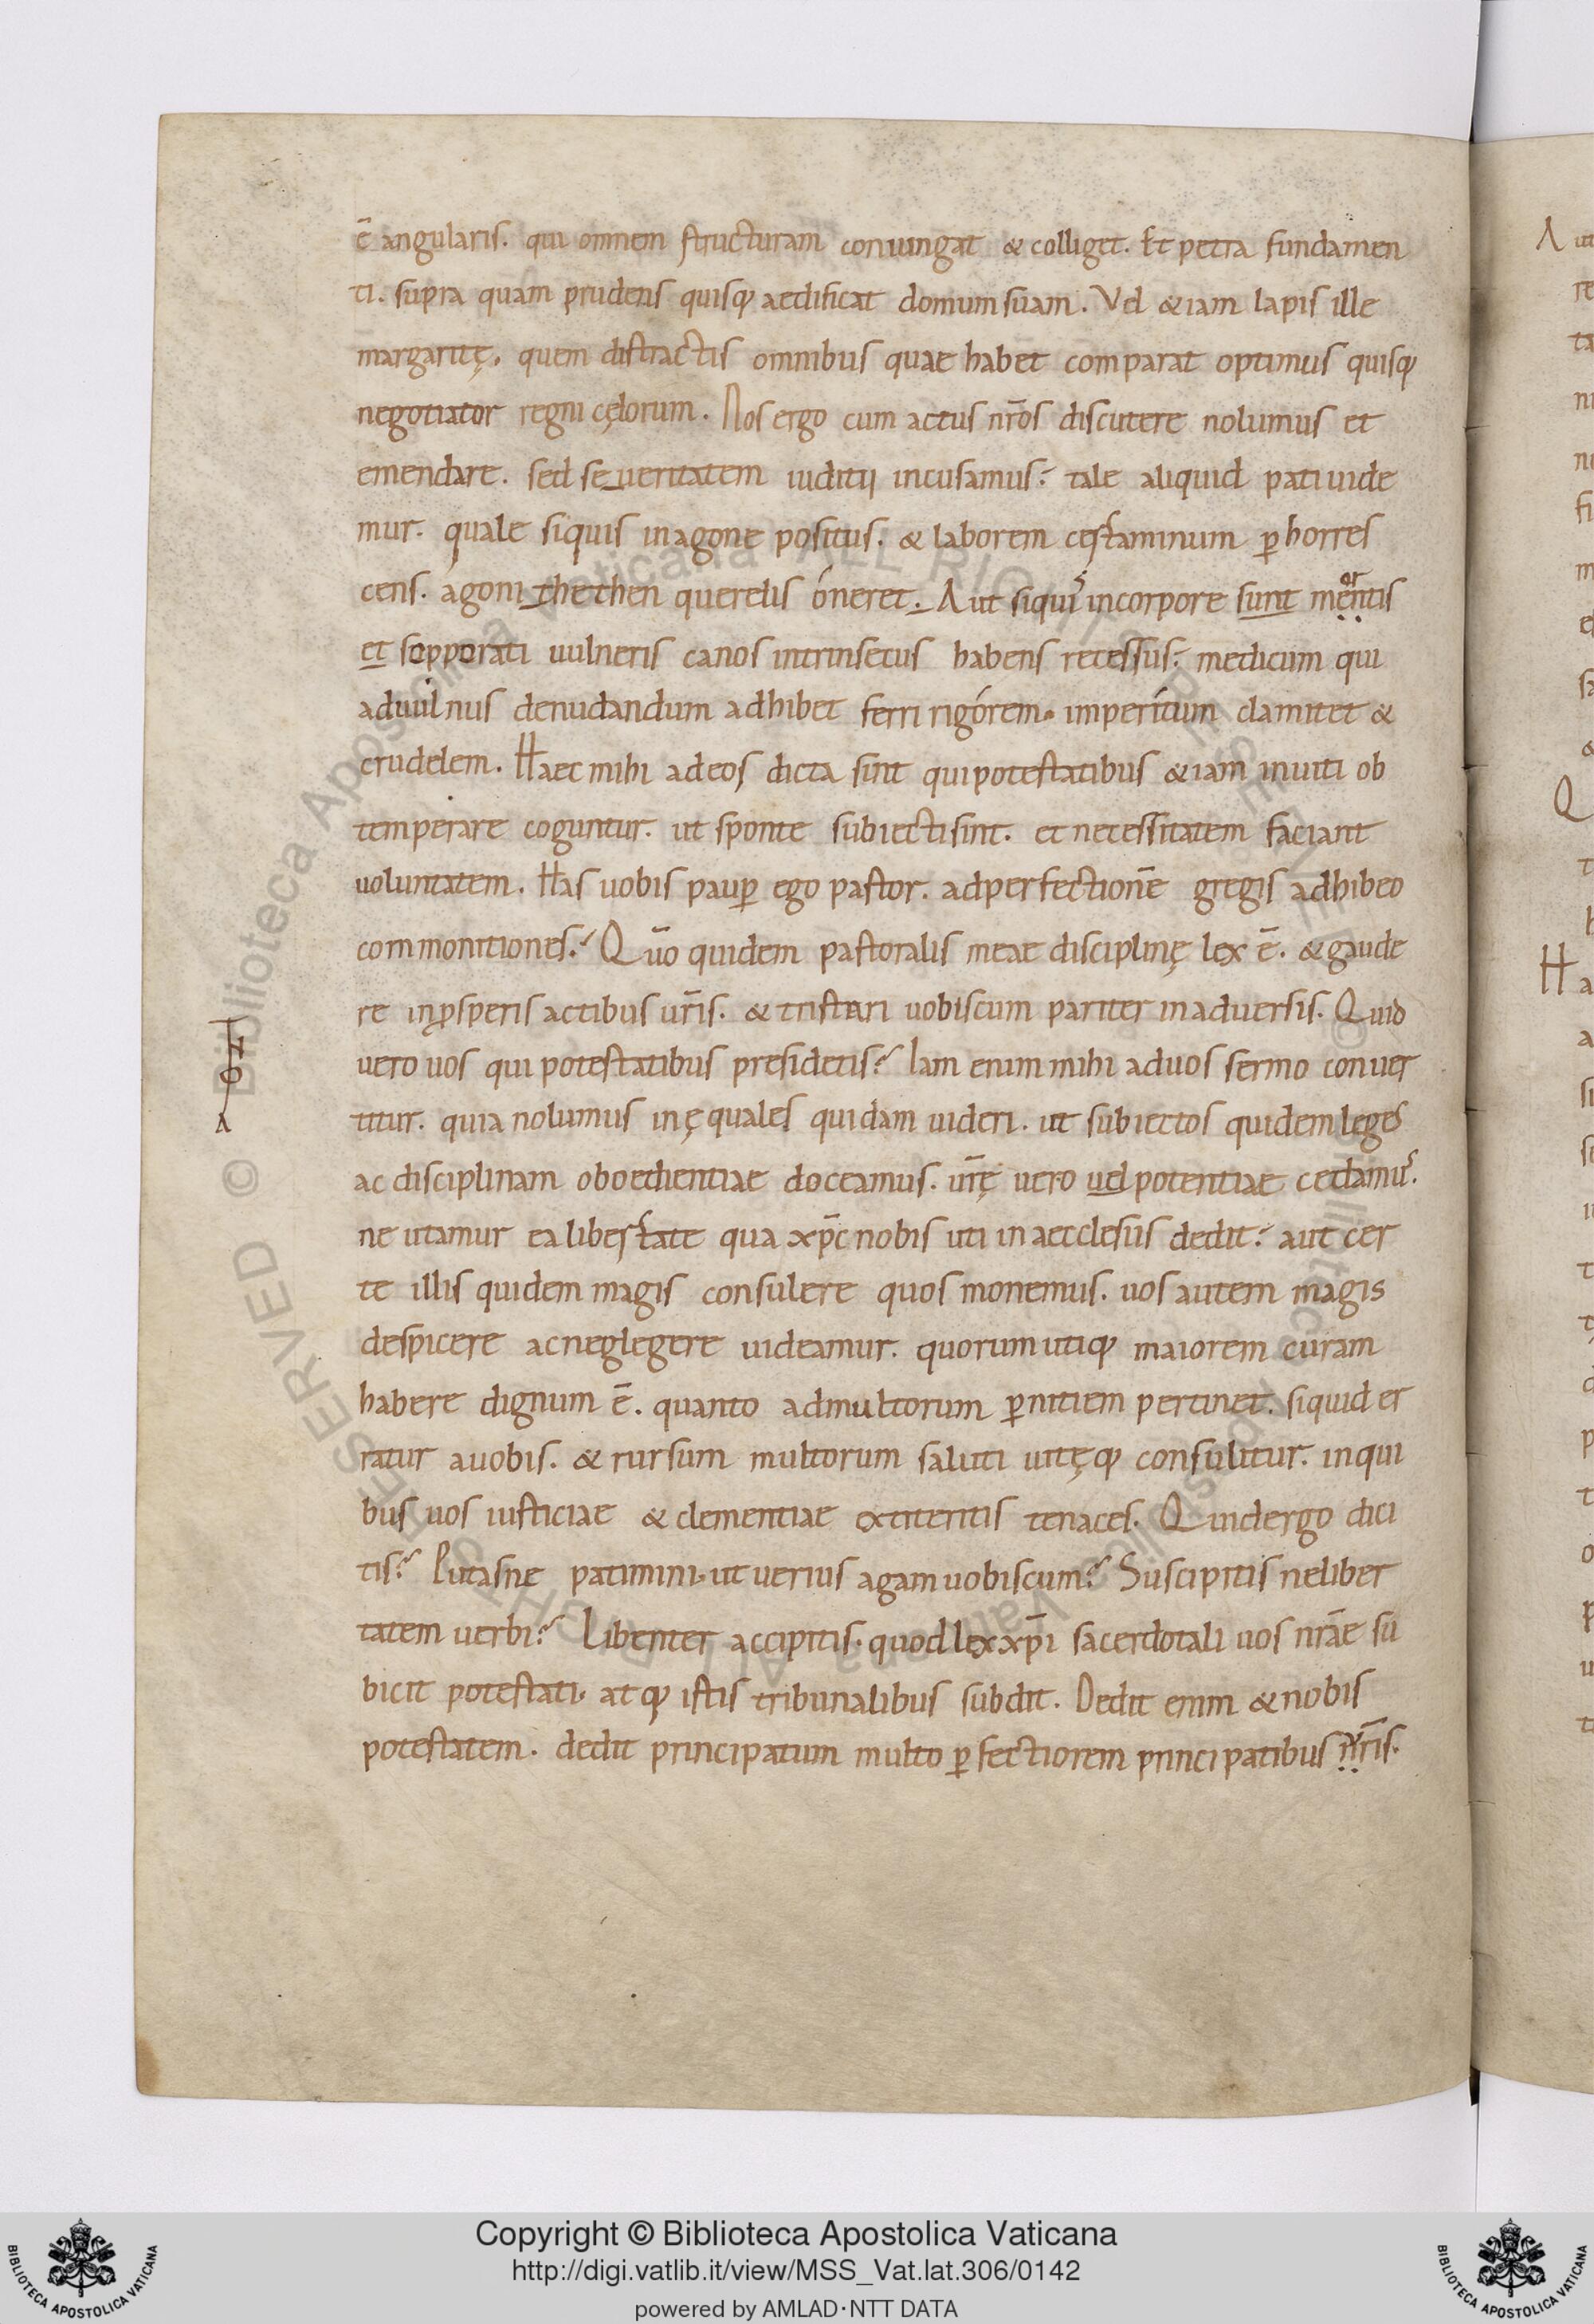 ē angularis. qui omnem structuram coniungat & colliget. Et petra fundamen
ti. supra quam prudens quisq; aedificat domum suam. Vel &iam lapis ille
margaritę. quem distractis omnibus quae habet comparat optimus quisq;
negotiator regni cęlorum. Nos ergo cum actus nr̄os discutere nolumus et
emendare. sed seueritatem iuditii incusamus? tale aliquid pati uide
mur. quale siquis in agone positus. & laborem certaminum ꝑhorres
cens. agonithethen querelis óneret. Aut siquis incorpore sunt mentis
or
et sopporati uulneris canos intrinsecus habens recessus? medicum qui
aduulnus denudandum adhibet ferri rigórem. imperitum clamitet &
crudelem. Haec mihi adeos dicta sint qui potestatibus &iam inuiti ob
temperare coguntur. ut sponte subiecti sint. et necessitatem faciant
uoluntatem. Has uobis pauꝑ ego pastor. adperfectionē gregis adhibeo
commonitiones? Quō quidem pastoralis meae disciplinę lex ē. & gaude
re inꝓsperis actibus ur̄is. & tristari uobiscum pariter in aduersis. Quid
uero uos qui potestatibus presidetis? Iam enim mihi aduos sermo conuer
titur. quia nolumus inęquales quidam uideri. ut subiectos quidem leges
ac disciplinam oboedientiae doceamus. ur̄ę uero uel potentiae cedamus.
ne utamur ea libertate qua xp̄c nobis uti in aecclesiis dedit? aut cer
te illis quidem magis consulere quos monemus. uos autem magis
despicere ac neglegere uideamur. quorum utiq; maiorem curam
habere dignum ē. quanto admultorum ꝑnitiem pertinet. siquid er
ratur auobis. & rursum multorum saluti uitęq; consulitur. in qui
bus uos iusticiae & clementiae extiteritis tenaces. Quid ergo dici
tis? Putasne patimini. ut uerius agam uobiscum? Suscipitis ne liber
tatem uerbi? Libenter accipitis. quod lex xp̄i sacerdotali uos nr̄ae su
bicit potestati. atq; istis tribunalibus subdit. Dedit enim & nobis
potestatem. dedit principatum multo ꝑfectiorem principatibus ur̄is.
Copyright © Biblioteca Apostolica Vaticana
http://digi.vatlib.it/view/MSS_Vat.lat.306/0142
powered by AMLAD·NTT DATA
BIBLIOTECA APOSTOLICA VATICANA
BIBLIOTECA APOSTOLICA VATICANA